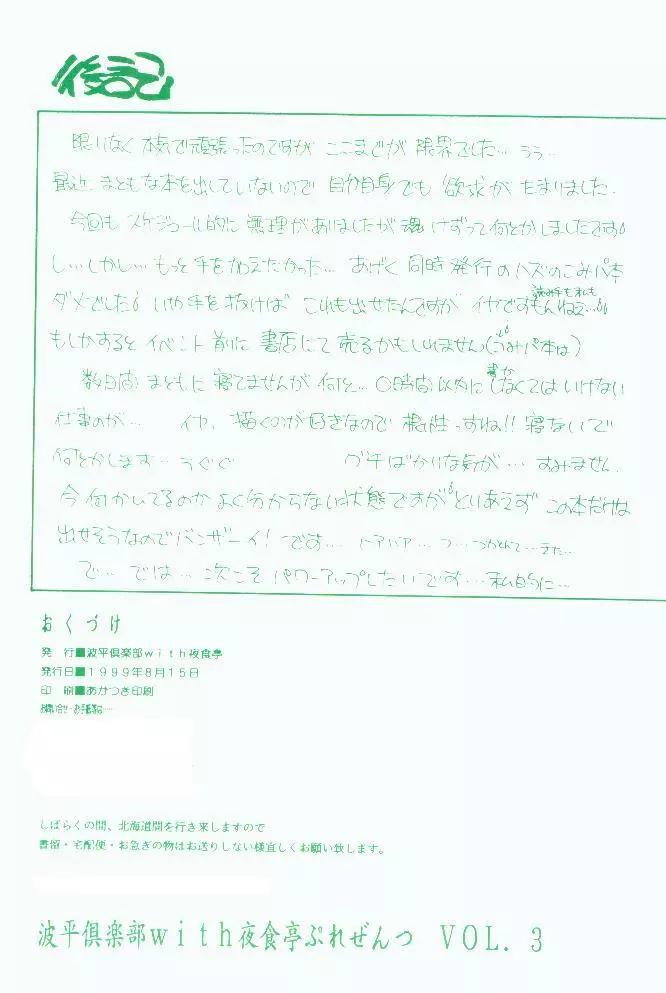 後記
限りなく本気で頑張ったのですが ここまでが 限界でした… うう…
最近、まともな本を出していないので 自分自身でも 欲求が たまりました.
今回も スケジュール的に 無理がありましたが 魂 けずって 何とかしましたです
し…しかし… もっと手をかえたかった… あげく 同時発行の ハズの こみパ本
読み手も私も
ダメでした いや手を抜けば これも出せたんですが イヤですもんねえ…
もしかすると イベント前に 書店にて 売るかもしれません(こみパ本は)
書か
数日間 まともに 寝てませんが 何と… 〇時間以内に しなくてはいけない
仕事のが… イヤ、描くのが好きなので 根性っすね!! 寝ないで
何とかします… うぐぐ グチばかりな気が… すみません.
今 何かいてるのか よく分からない状態ですが とりあえず この本だけは
出せそうなのでバンザーイ! です… … つ… つかれて…きた…
で… では… 次こそ パワーアップしたいです… 私自身に…
おくづけ
発 行■波平倶楽部with夜食亭
発行日■1999年8月15日
印 刷■あかつき印刷
しばらくの間、北海道間を行き来しますので
書留・宅配便・お急ぎの物はお送りしない様宜しくお願い致します。
波平倶楽部with夜食亭ぷれぜんつ VOL. 3